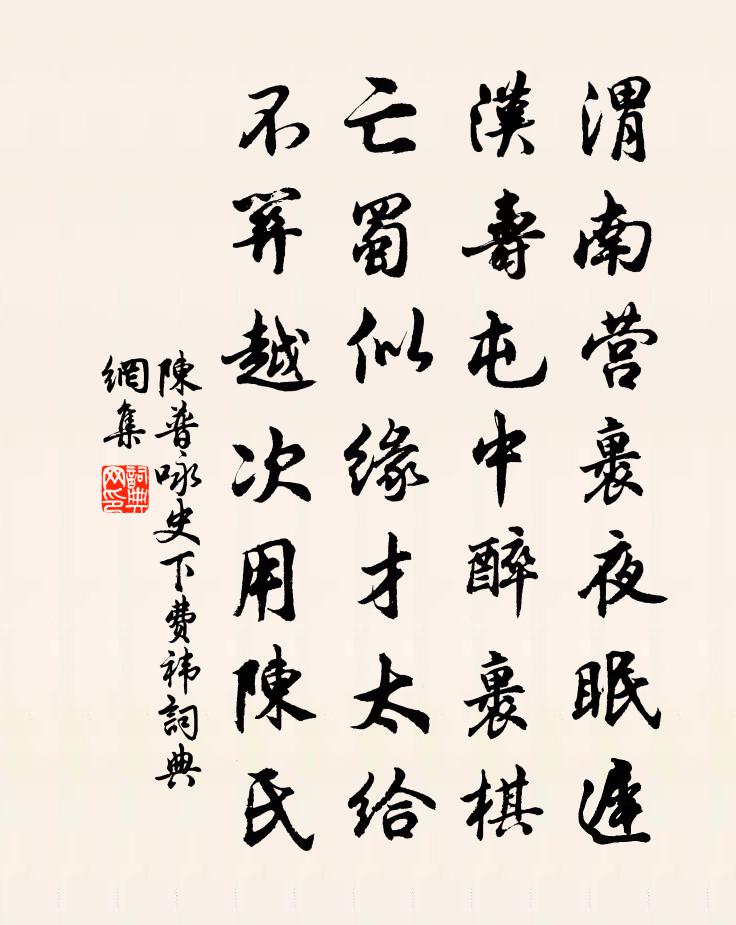 渭南营裹夜眠遲
漢壽屯中醉裹棋
亡蜀似緣才太給
不筭越次用陳氏
陳普咏史下費祎詞典
網集
詞典
网印